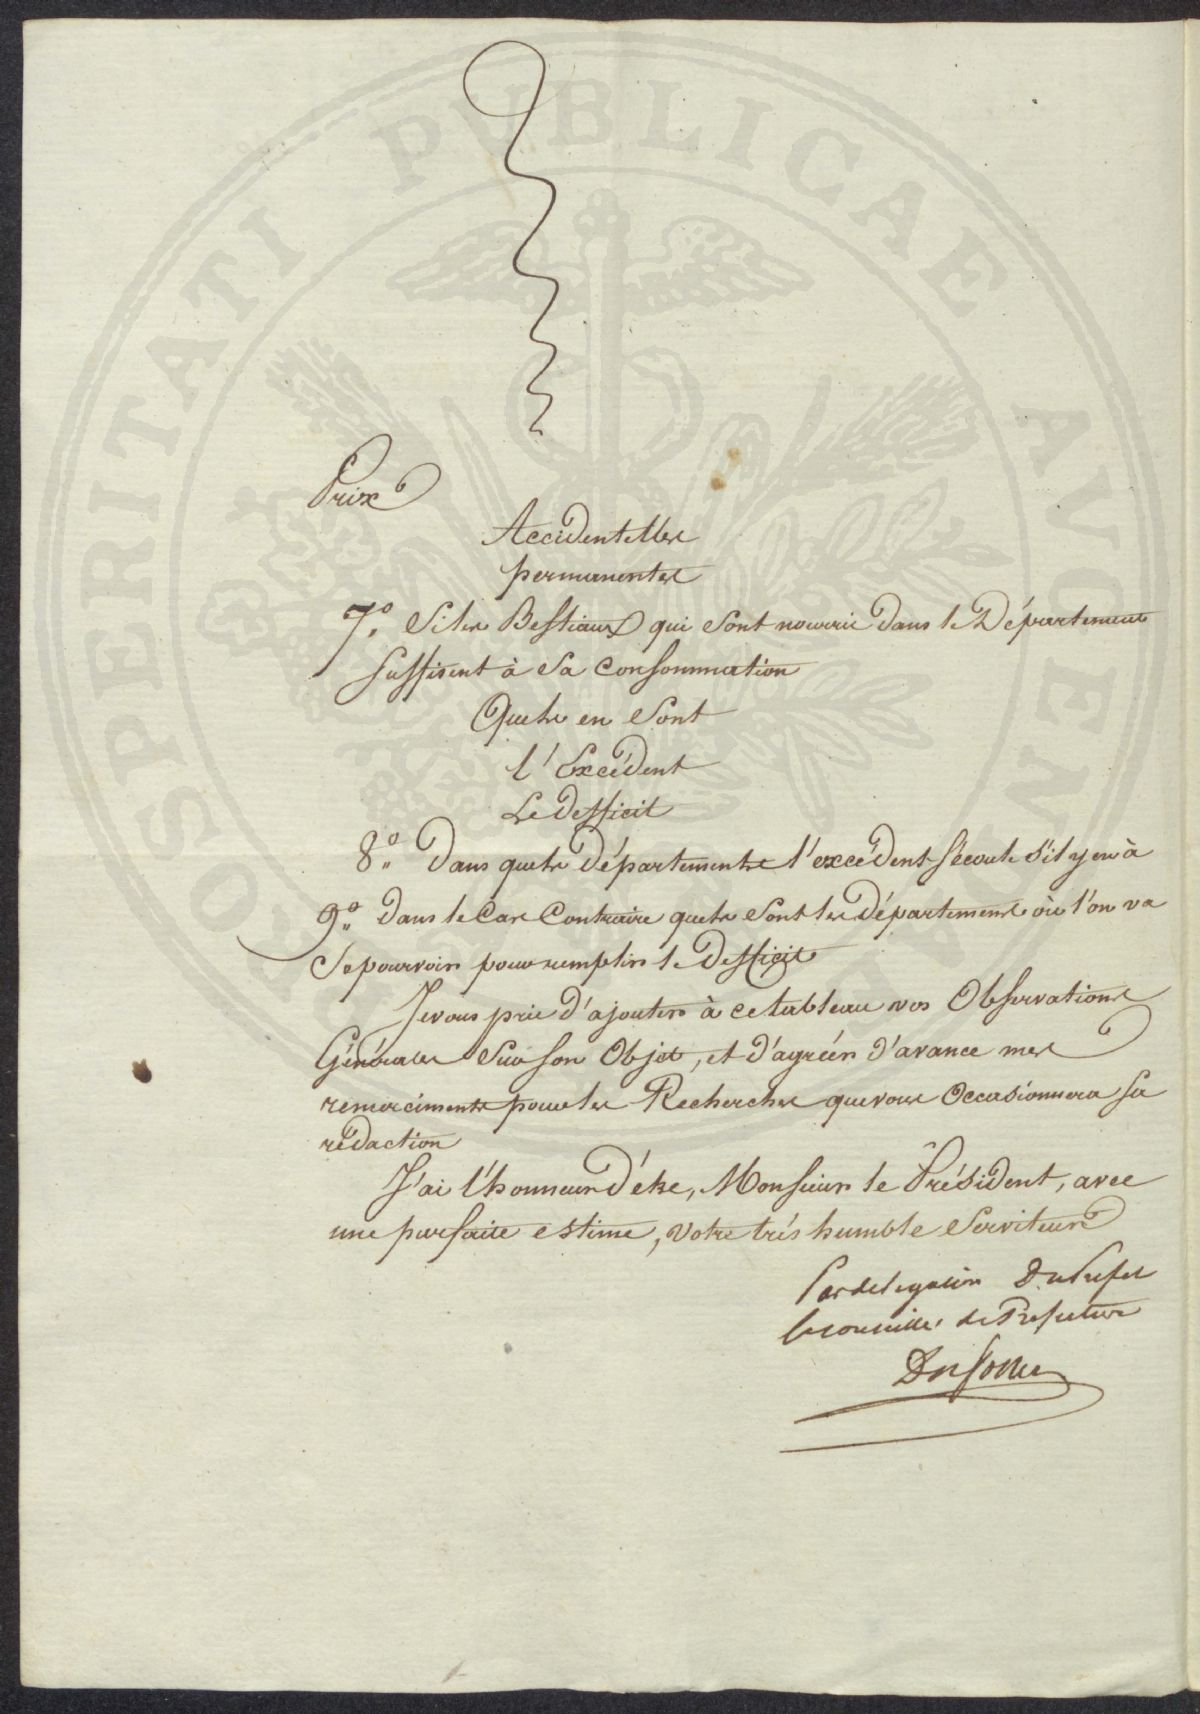 Prix
Accidentelles
permanentes
7.° Si les Bestiaux qui sont nourris dans le Département
suffisent à sa consommation
Quels en sont
l'Excédent
Le defficit
8.° Dans quels Départements l'excédent s'écoule s'il y en à
9.° Dans le cas Contraire quels sont les départemens où l'on va
se pourvoir pour remplir le defficit
Je vous prie d'ajouter à ce tableau vos Observations
Générales sur son Objet, et d'agréer d'avance mes
remerciments pour les Recherches que vous Occasionnera sa
rédaction
J'ai l'honneur d'être, Monsieur le Président, avec
une parfaite estime, votre très humble Serviteur
Par delegation Du Prefet
le conseiller de Prefecture
SOSPERITATI PUBLICAE AUGENDAE